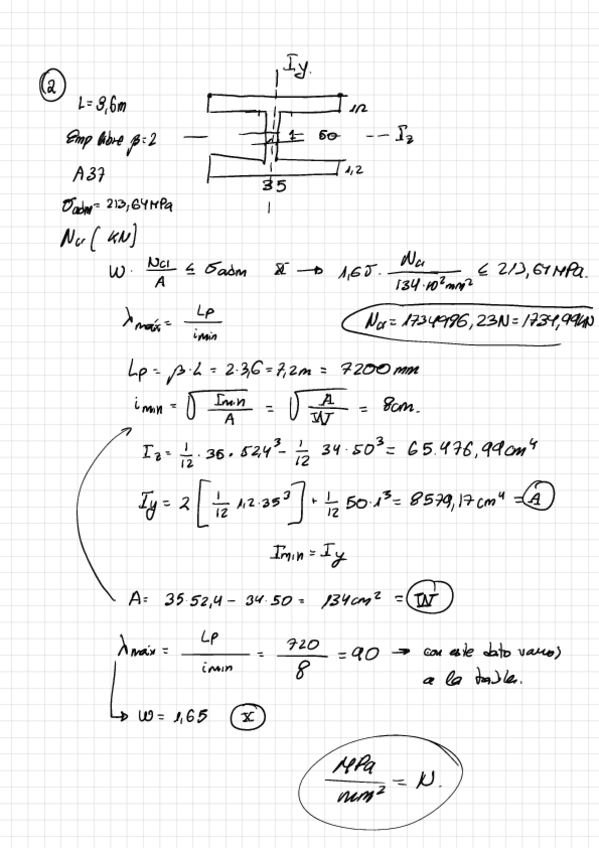 ② Iy.
L = 3,6m 1,2
Emp libre β=2 1 50 Iz
A37 1,2
35
σadm = 213,64MPa
Ncr (KN)
W · Ncr/A ≤ σadm Ⅱ → 1,65 · Ncr/134·10² mm² ≤ 213,64 MPa.
λmáx = Lp/imin
Ncr = 1734996,23N = 1734,99kN
Lp = β·L = 2·3,6 = 7,2m = 7200mm
imin = √(Imin/A) = √(A/W) = 8cm.
Iz = 1/12 · 35 · 52,4³ - 1/12 34·50³ = 65.476,99cm⁴
Iy = 2 [1/12 1,2·35³] + 1/12 50·1³ = 8579,17cm⁴ = Ⓐ
Imin = Iy
A = 35·52,4 - 34·50 = 134cm² = Ⓦ
λmáx = Lp/imin = 720/8 = 90 → con este dato vamos
a la tabla.
↳ W = 1,65 Ⓧ
MPa/mm² = N.